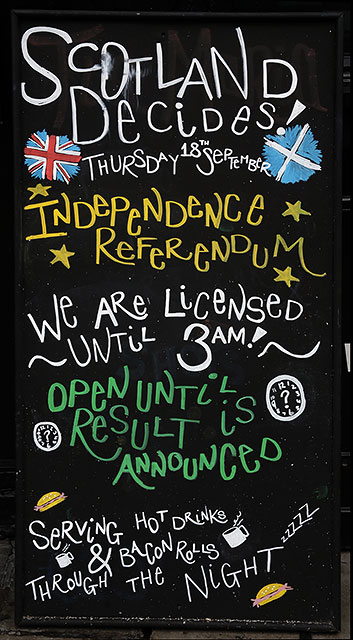 SCOTLAND
DECIDES!
THURSDAY 18TH SEPTEMBER
INDEPENDENCE
REFERENDUM
WE ARE LICENSED
~UNTIL 3AM!~
OPEN UNTIL
RESULT IS
ANNOUNCED
?
?
SERVING HOT DRINKS
& BACON ROLLS
THROUGH THE NIGHT
ZZZZZ